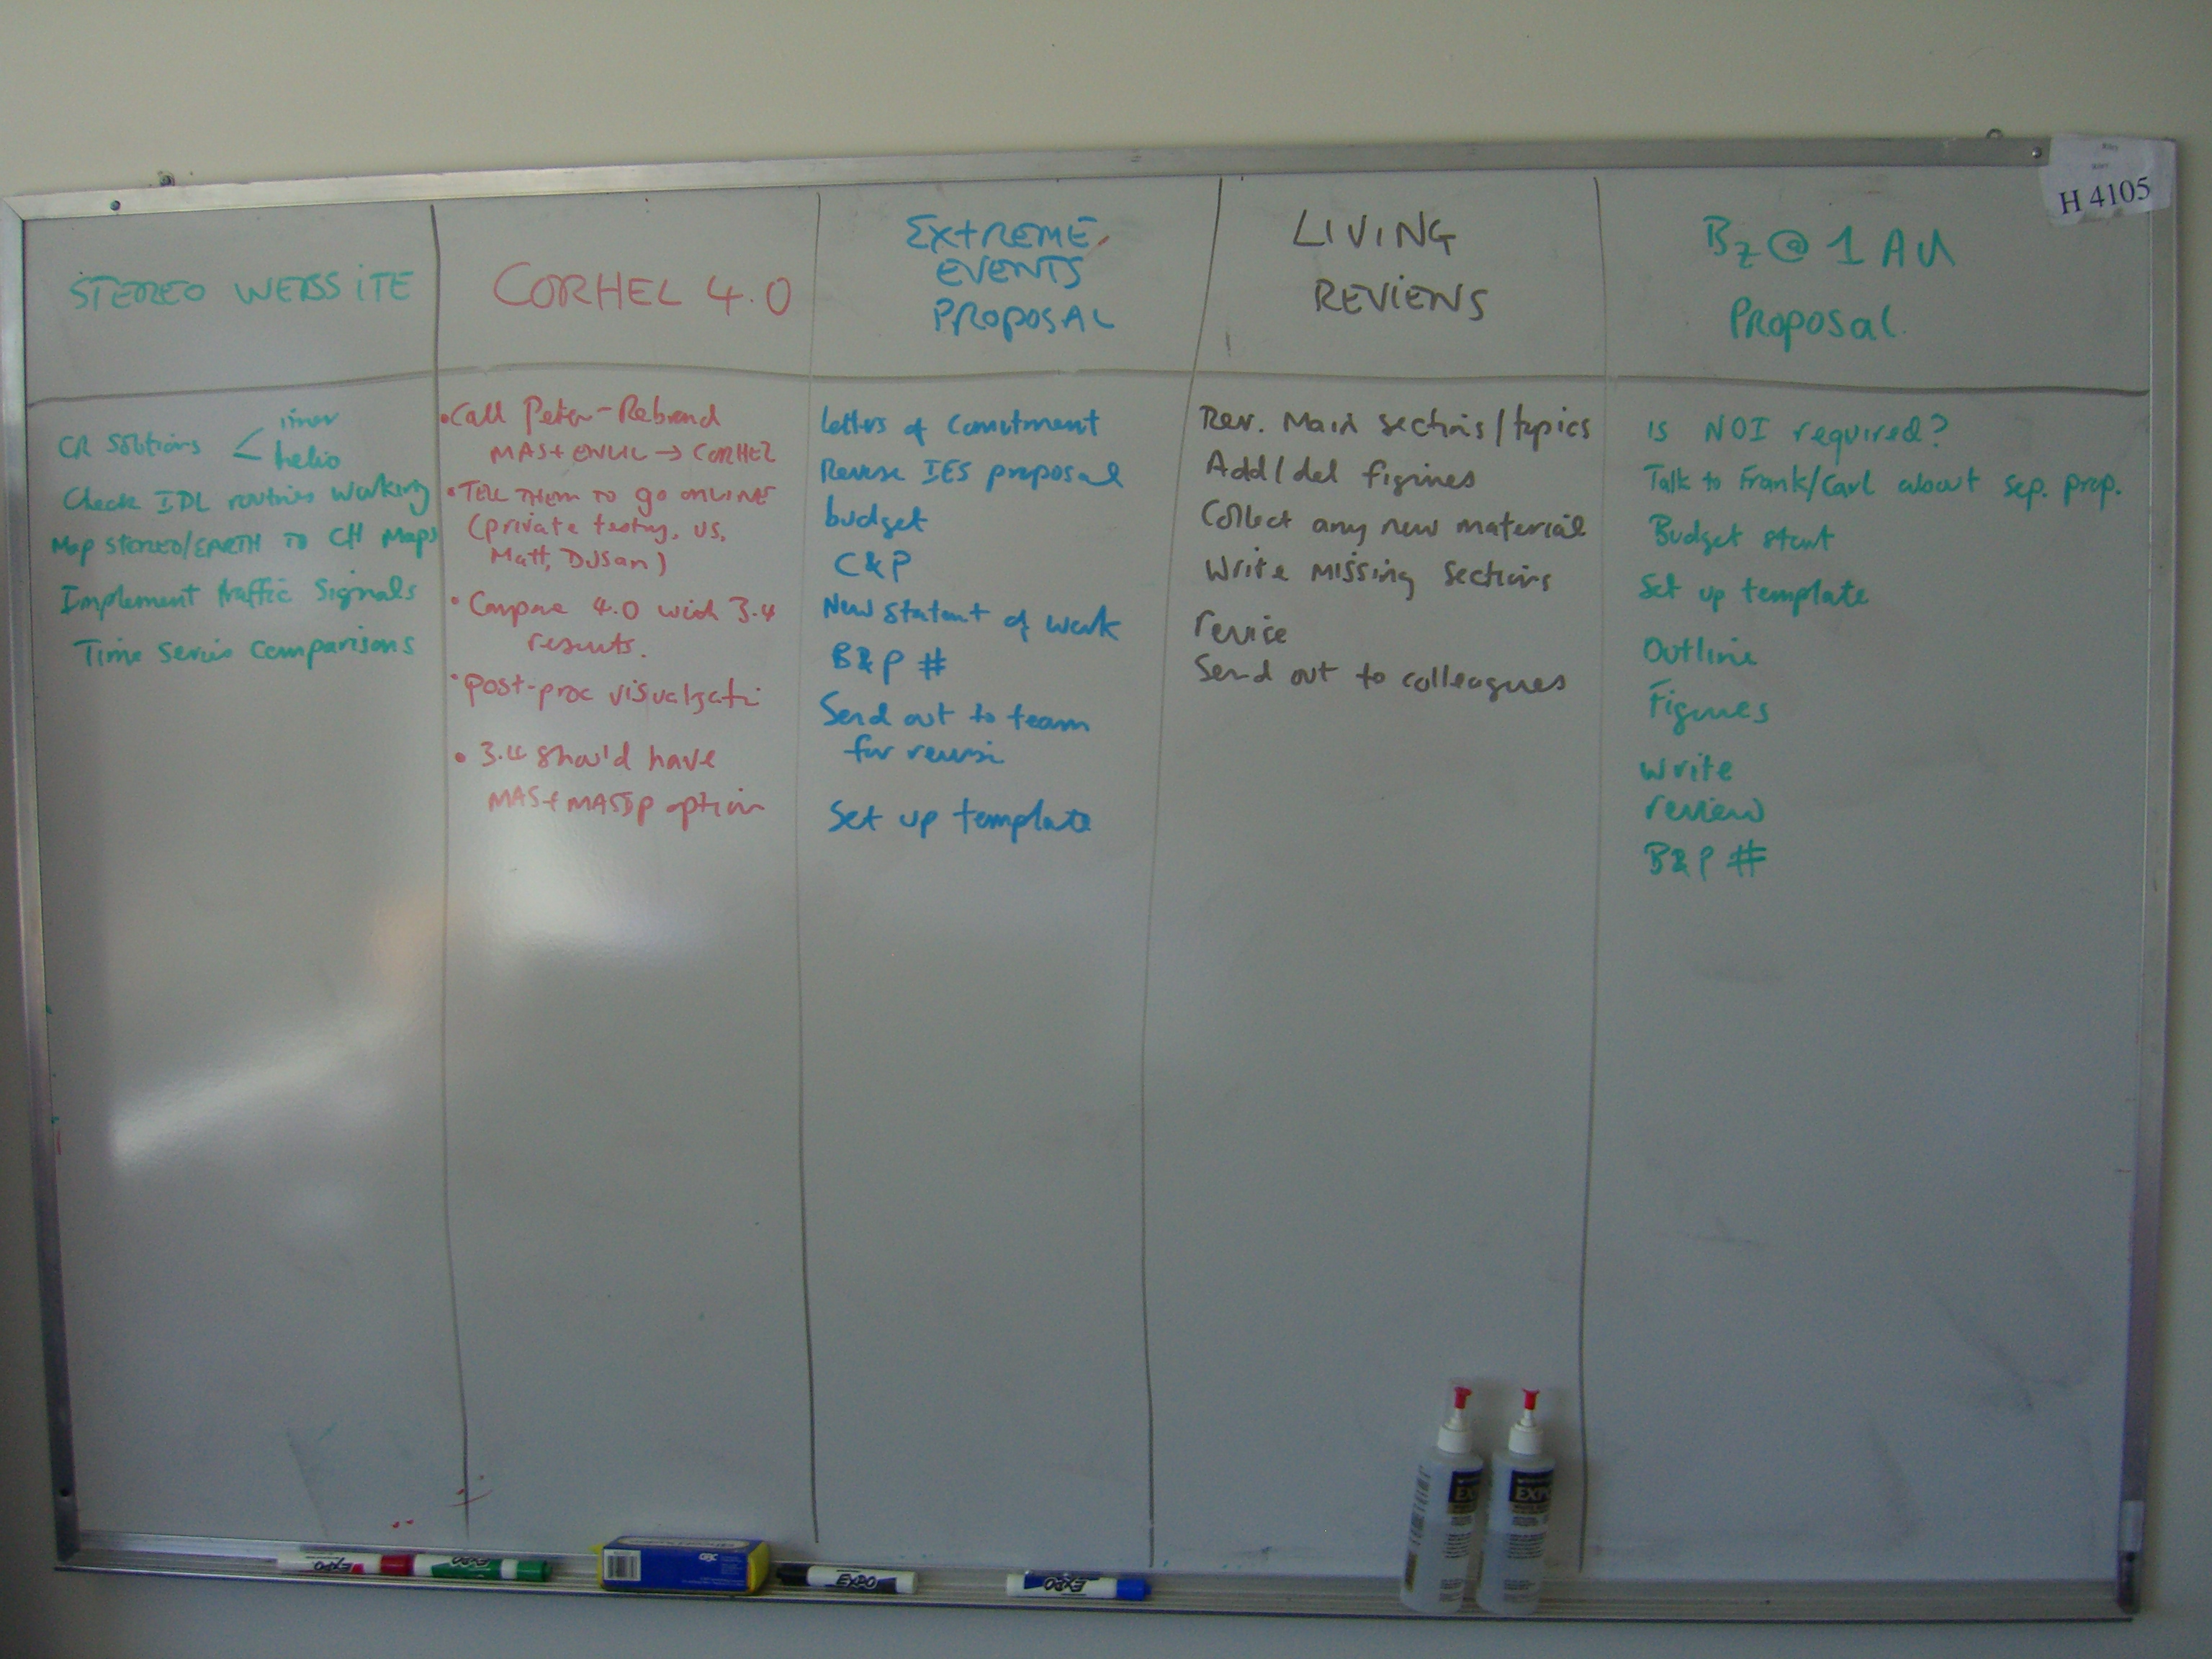 H 4105
STEREO WEBSITE
CR Solutions < inner
helio
Check IDL routines working
Map STEREO/EARTH TO CH Maps
Implement traffic Signals
Time Series Comparisons
CORHEL 4.0
• Call Peter - Rebrand
MAS + ENLIL → CORHEL
• TELL THEM TO go ONLINE
(private testing, us,
Matt, DUSAN)
• Compare 4.0 with 3.4
results.
• Post-proc
• 3.4 should have
MAS + option
EXTREME
EVENTS
PROPOSAL
Letters of Comitment
IES proposal
budget
C&P
New Statement of work
B&P #
Send out to team
for
Set up template
LIVING
REVIEWS
Rev. Main sections/topics
Add/del figures
Collect any new material
Write missing sections
revise
Send out to colleagues
Bz @ 1 AU
Proposal.
Is NOI required?
Talk to Frank/Carl about sep. prop.
Budget start
Set up template
Outline
Figures
write
review
B&P #
EXPO
EXPO
EXPO
EXPO
EXPO